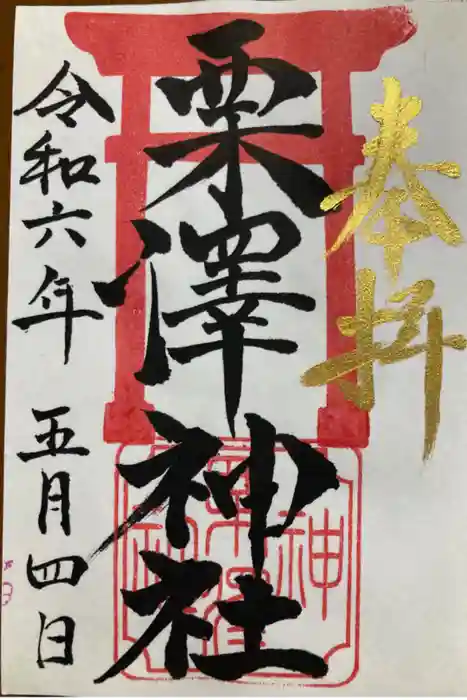 奉拝
栗澤神社
令和六年 五月四日